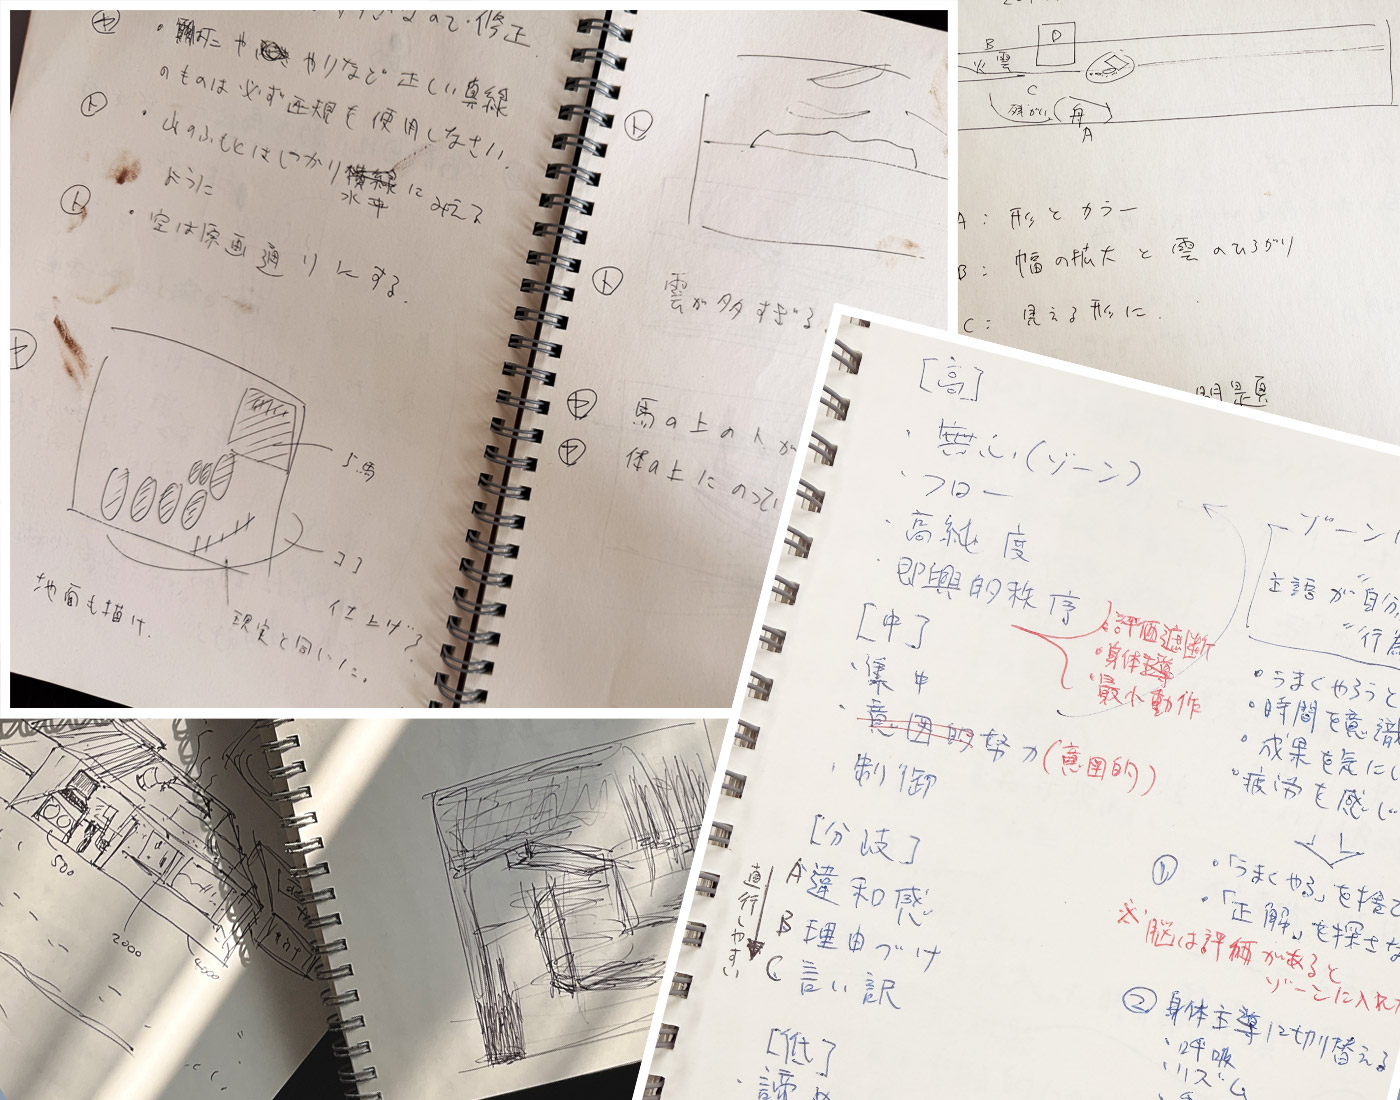 ので・修正
や やりなど正しい直線
のものは必ず定規を使用しなさい。
ト
・山のふもとはしっかり
水平 にみえる
ように
ト
・空は原画通りにする。
ヤ
馬
ココ
地面も描け.
仕上げる
現実と同じに.
ト
ト
雲が多すぎる.
ヤ
馬の上の人が
ヤ
体の上にのってい
D
B
火 雲
C
舟
A
A: 形とカラー
B: 幅の拡大と雲のひろがり
C: 見える形に.
問題
500
2000
4000
[高]
・無心(ゾーン)
・フロー
・高純度
・即興的秩序
・評価遮断
・身体主導
・最小動作
[中]
・集中
・意図的努力(意図的)
・制御
[分岐]
進行しやすい
A 違和感
B 理由づけ
C 言い訳
[低]
・諦め
ゾーン
主語が"自分
"行為
・うまくやろうと
・時間を意識
・成果を気にし
・疲労を感じ
① ・「うまくやる」を捨て
・「正解」を探さな
※脳は評価があると
ゾーンに入れ
② 身体主導に切り替える
・呼吸
・リズム